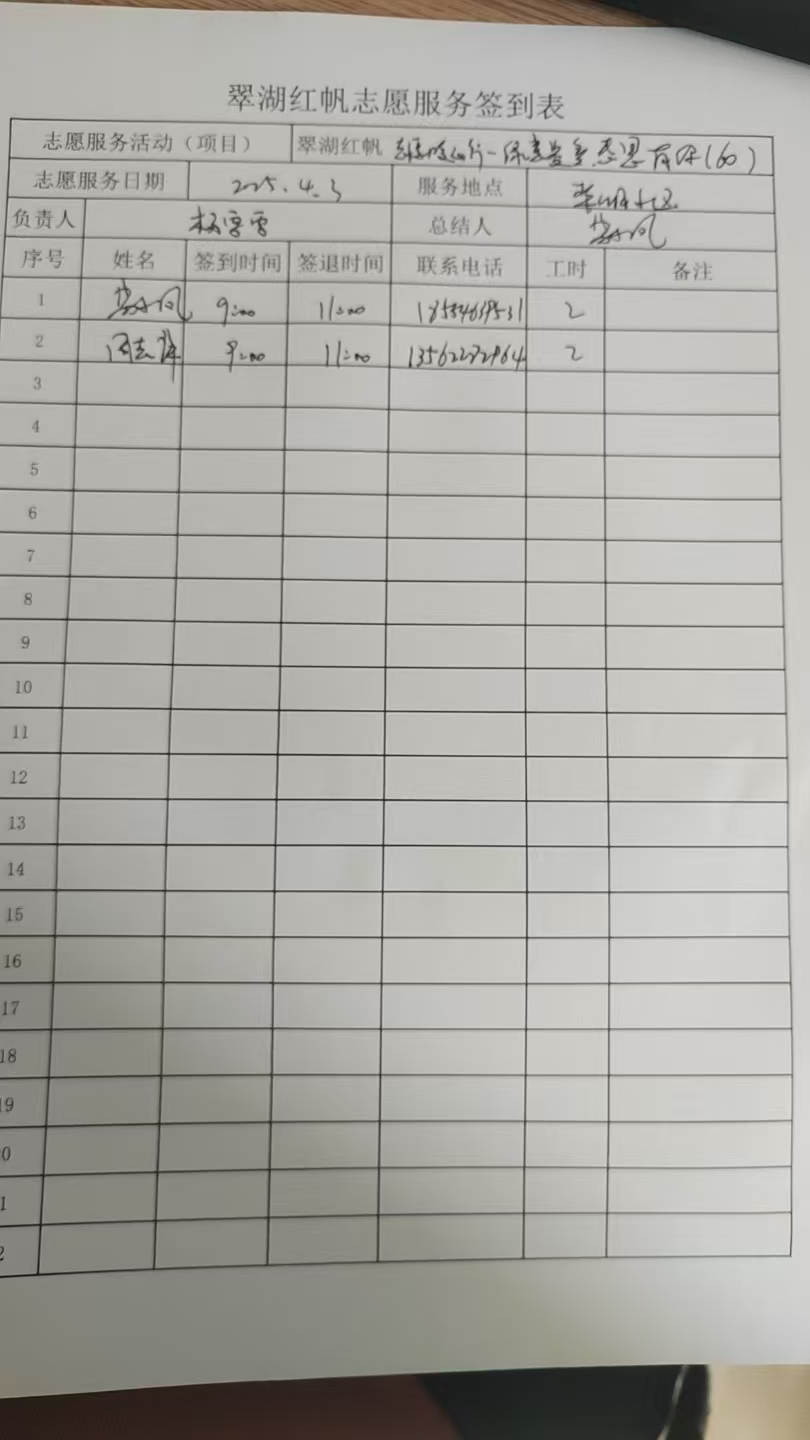 翠湖红帆志愿服务签到表
志愿服务活动（项目） 翠湖红帆 感恩有你(60)
志愿服务日期 2025.4.3 服务地点
负责人 总结人
序号 姓名 签到时间 签退时间 联系电话 工时 备注
1 9:00 11:00 2
2 9:00 11:00 13562272964 2
3
4
5
6
7
8
9
10
11
12
13
14
15
16
17
18
19
0
1
2